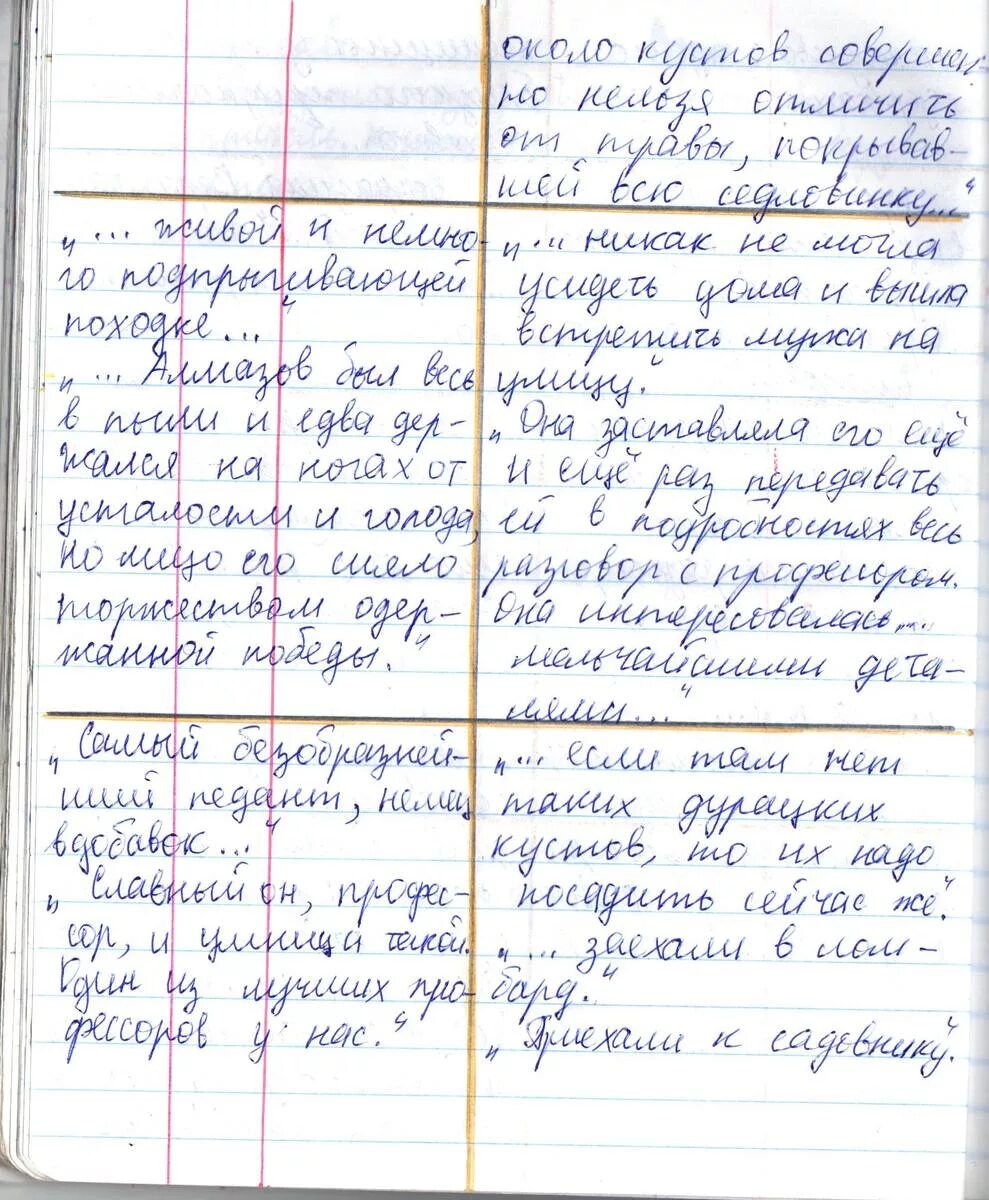 около кустов совершен-
но нельзя отличить
от травы, покрывав-
шей всю седловинку..."
„... живой и немно-
го подпрыгивающей
походке..."
„... Алмазов был весь
в пыли и едва дер-
жался на ногах от
усталости и голода,
но лицо его сияло
торжеством одер-
жанной победы."
„... никак не могла
усидеть дома и вышла
встретить мужа на
улицу."
„Она заставляла его ещё
и ещё раз передавать
ей в подробностях весь
разговор с профессором.
Она интересовалась ...
мельчайшими дета-
лями..."
„Самый безобразней-
ший педант, немец
вдобавок..."
„Славный он, профес-
сор, и умница такой.
Один из лучших про-
фессоров у нас."
„... если там нет
таких дурацких
кустов, то их надо
посадить сейчас же."
„... заехали в лом-
бард."
„Приехали к садовнику."